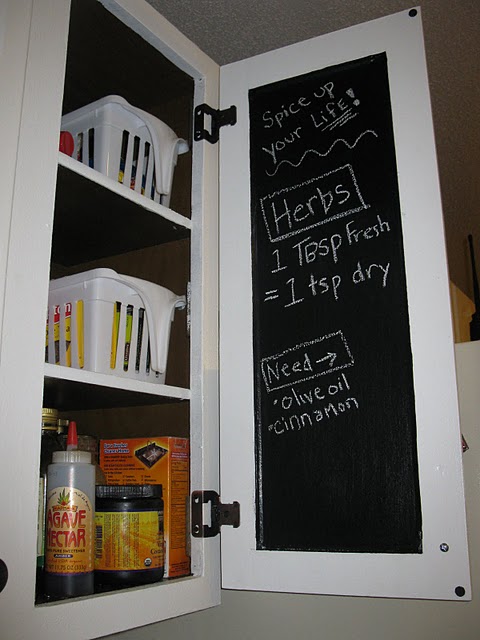 Spice up
your LiFE!
Herbs
1 TBSP fresh
= 1 tsp dry
Need →
· olive oil
· cinnamon
AGAVE
NECTAR